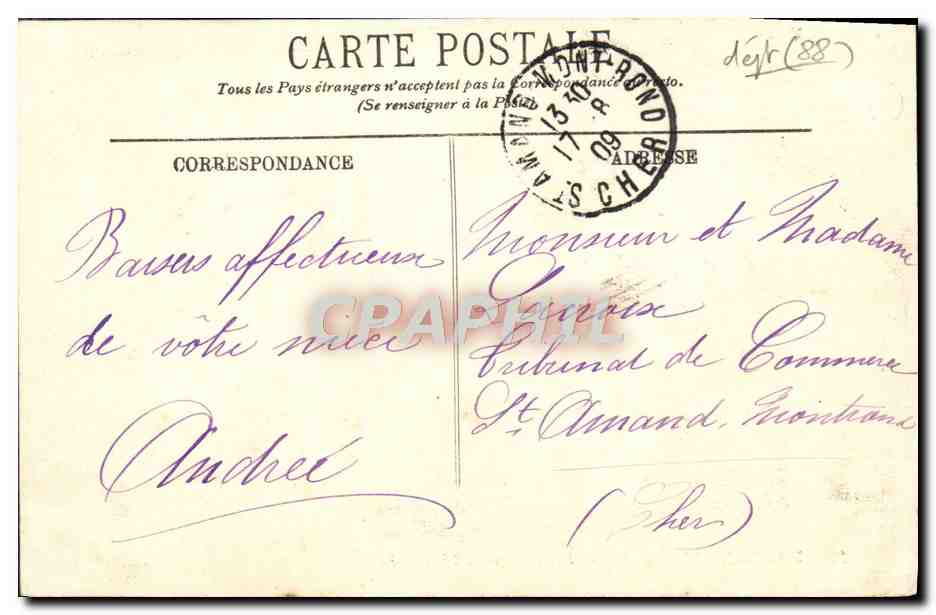 CARTE POSTALE
Tous les Pays étrangers n'acceptent pas la Correspondance au recto.
(Se renseigner à la Poste)
dépt (88)
ST AMAND MONT-ROND
13 30
17 - 8
09
CHER
CORRESPONDANCE
ADRESSE
Baisers affectueux
de vôtre nièce
Andreé
Monsieur et Madame
Lacroix
Tribunal de Commerce
St. Amand, Montrond
(Cher)
CPAPHIL